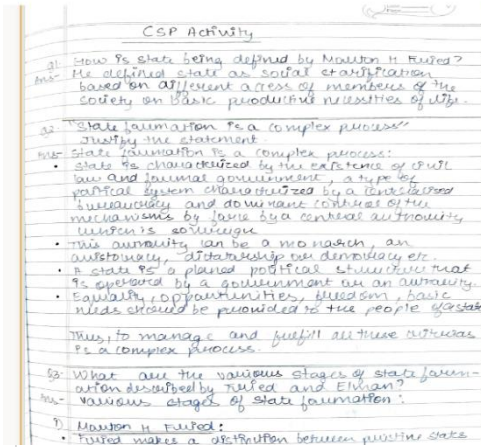 CSP Activity
Q1. How is state being defined by Mowton H Furied?
Ans- He defined state as social starification
based on different access of members of the
society on basic productive necessities of life.
Q2. "State formation is a complex process"
Justify the statement.
Ans- State formation is a complex process:
• State is characterized by the existence of civil
law and formal government, a type of
political system characterized by a centralized
bureaucracy and dominant control of the
mechanisms by force by a central authority
which is sovereign
• This authority can be a monarch, an
aristocracy, dictatorship or democracy etc.
• A state is a planed political structure that
is operated by a government or an authority.
• Equality, opportunities, freedom, basic
needs should be provided to the people of state
Thus, to manage and fulfill all these criterias
is a complex process.
Q3. What are the various stages of state form-
ation described by Furied and Elman?
Ans- Various stages of state formation:
1) Mowton H Furied:
• Furied makes a distinction between pristine state